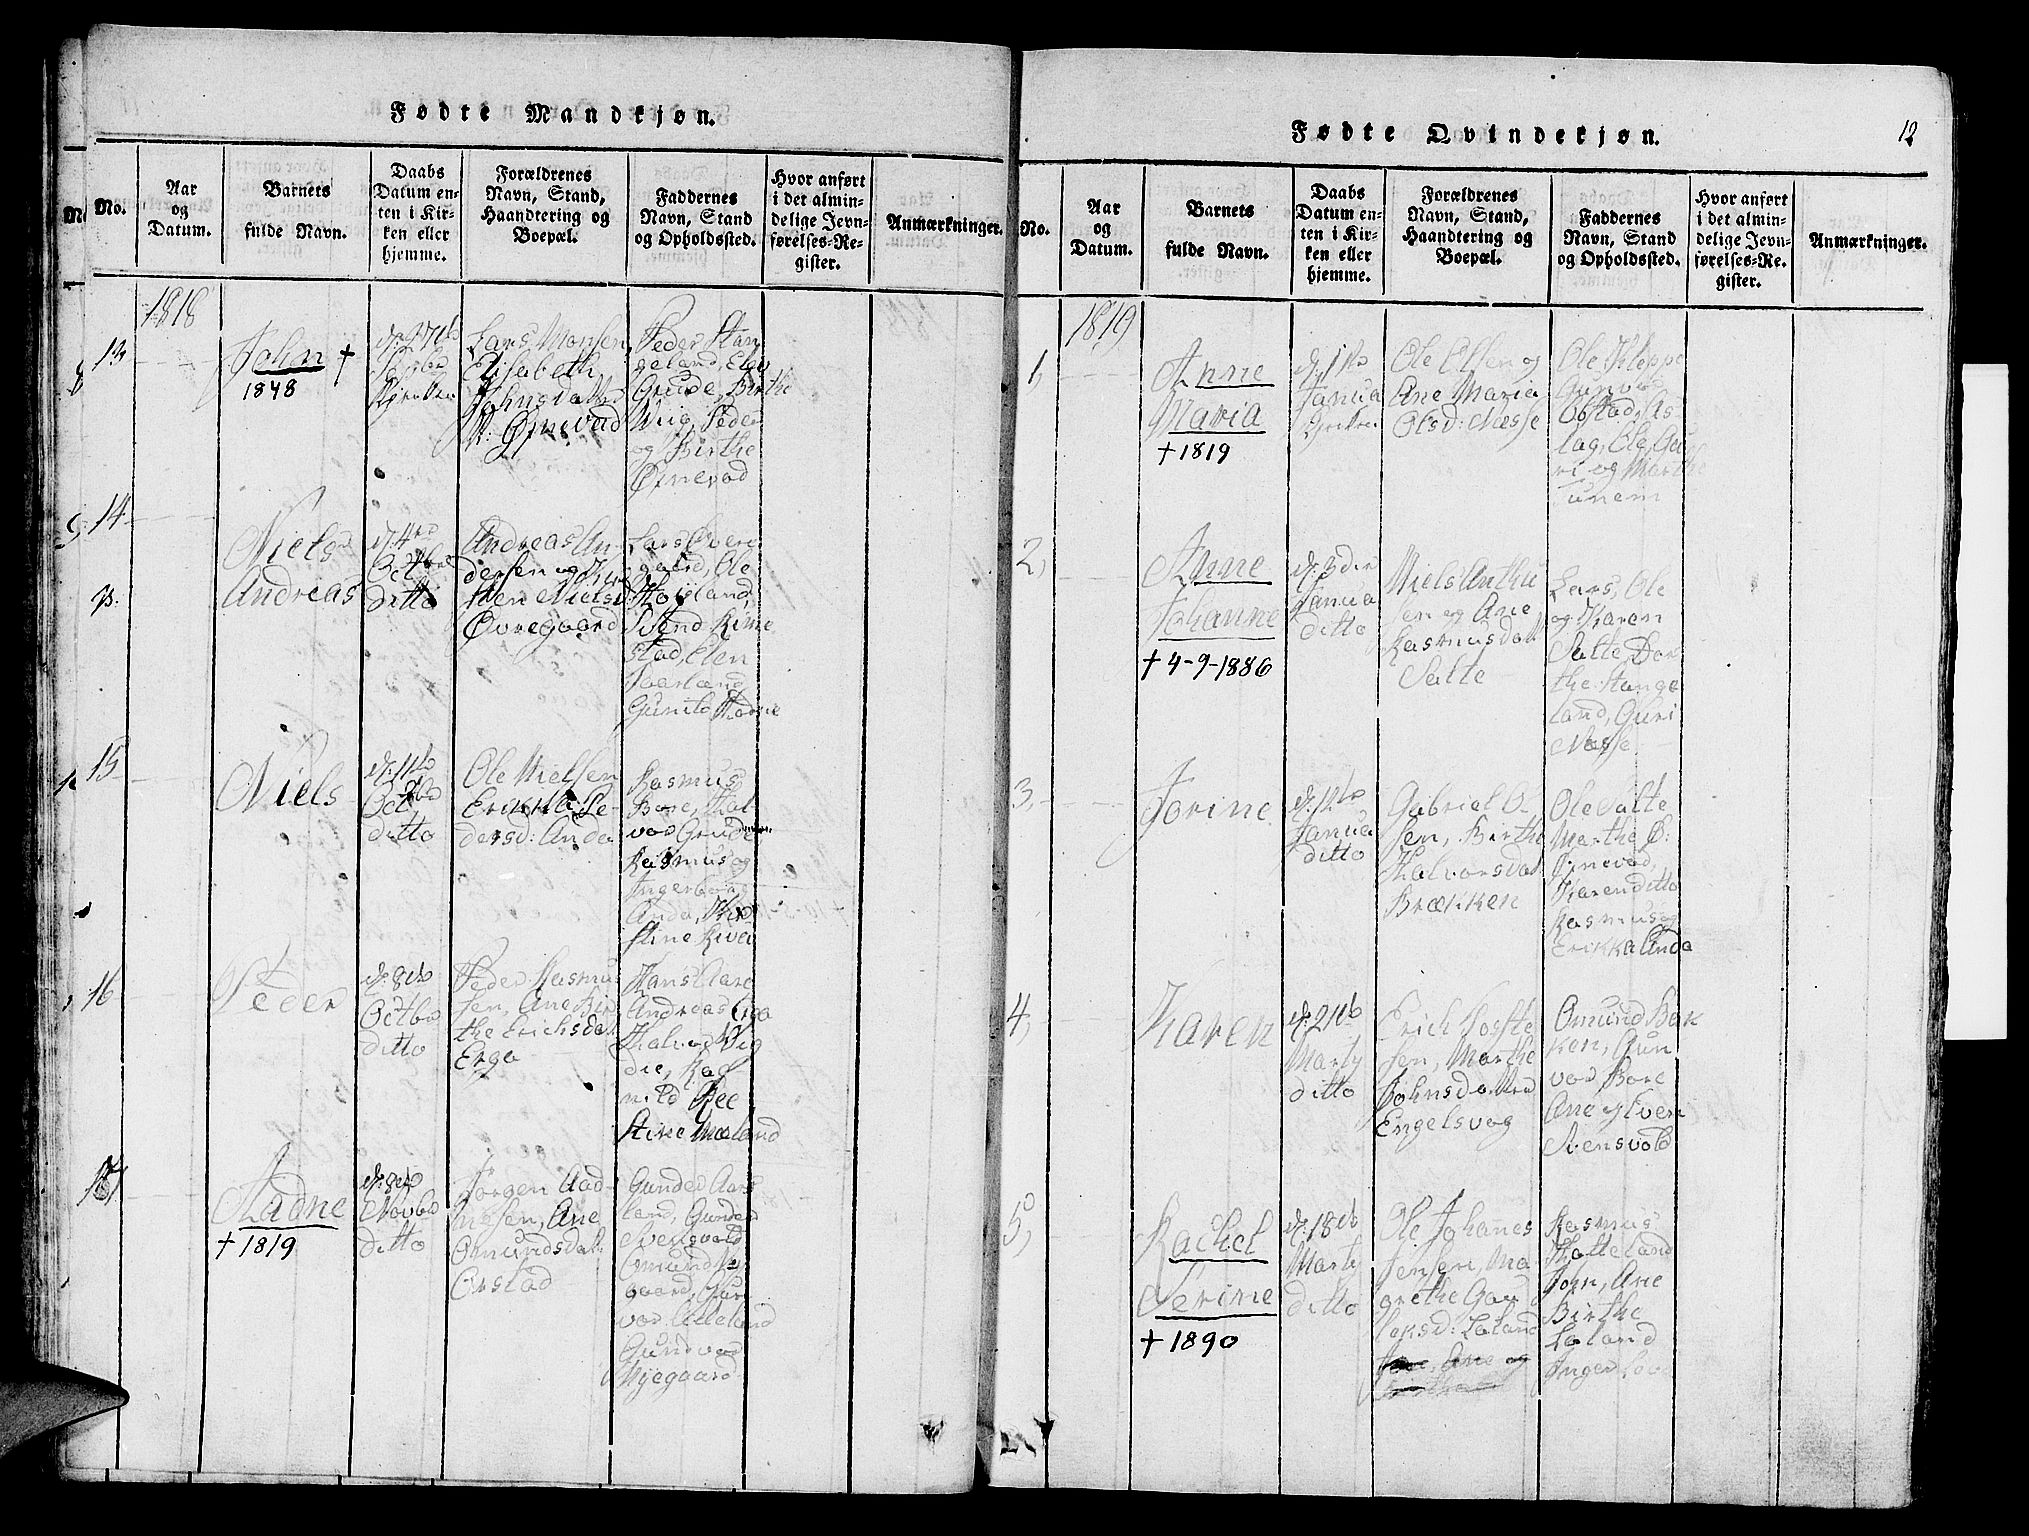 Fødte Mandkjøn.
No.
Aar
og
Datum.
Barnets
fulde Navn.
Daabs
Datum en-
ten i Kir-
ken eller
hjemme.
Forældrenes
Navn, Stand,
Haandtering og
Boepæl.
Faddernes
Navn, Stand
og Opholdssted.
Hvor anført
i det almin-
delige Jevn-
førelses-Re-
gister.
Anmærkninger.
1818
13
John †
1848
d: 27de
Septbr
Kjerken
Lars Monsen
Elisabeth
Johnsdatter
Ørnevad
Peder Stan
geland, Elen
Grude, Birthe
Wiig, Peder
og Birthe
Ørnevad
14
Niels
Andreas
d: 4de
Octbr
ditto
Andreas An
dersen og
Nielsd
Øvregaard
Lars Øvre
gaard, Ole
Høiland,
Svend Rime
stad, Elen
Joerland
15
Niels
d: 11te
Octbr
ditto
Ole Nielsen
Erikka Pe-
dersd: Anda
Rasmus
Bore, Hal
vor Grude
Rasmus og
Ingerborg
Anda, Kir
stine
16
Peder
d: 8de
Octbr
ditto
Peder Rasmu
sen, Ane Bir
the Erichsdat
Erga
Hans
Andreas Erga
Halvor Vig
die, Rag
nild Ree
Stine Mæland
17
Aadne
† 1819
d: 8de
Novbr
ditto
Jorgen Aad-
nesen, Ane
Omundsdat
Orstad
Gunder Aars
land, Gunder
Svensvold
Omund
gaard, Gun
vor
Gundvor
Myegaard
12
Fødte Qvindekjøn.
No.
Aar
og
Datum.
Barnets
fulde Navn.
Daabs
Datum en-
ten i Kir-
ken eller
hjemme.
Forældrenes
Navn, Stand,
Haandtering og
Boepæl.
Faddernes
Navn, Stand
og Opholdssted.
Hvor anført
i det almin-
delige Jevn-
førelses-Re-
gister.
Anmærkninger.
1819
1,
Anne
Maria
† 1819
d: 1te
Janua
Kjerken
Ole Olsen og
Ane Maria
Olsd: Næsse
Ole Kleppe
Gunvor
Obstad, As-
lag, Ole, Gu
ri og Marthe
Tunem
2,
Anne
Johanne
† 4-9-1886
d: 3die
Janua
ditto
Niels Anthu
sen og Ane
Rasmusdat
Salte
Lars, Ole
og Karen
Salte, Dor
the Stange
land, Guri
Næsse
3,
Jorine
Janua
ditto
Gabriel Ol
sen, Birthe
Halvorsdat
Brækken
Ole Salte
Marthe O:
Ørnevad,
Karen ditto
Rasmus og
Erikka Anda
4,
Karen
d: 21de
Marty
ditto
Erich Toste
sen, Marthe
Johnsdatter
Engelsvog
Omund Bak
ken, Gun
vor Bore
Ane og Iver
Stensvold
5,
Rachel
Serine
† 1890
d: 18de
Marty
ditto
Ole Johanes
Jensen, Ma
grethe Gou
laksd: Laland
Rasmus
Hatteland
John, Ane
Birthe
Laland
Inger